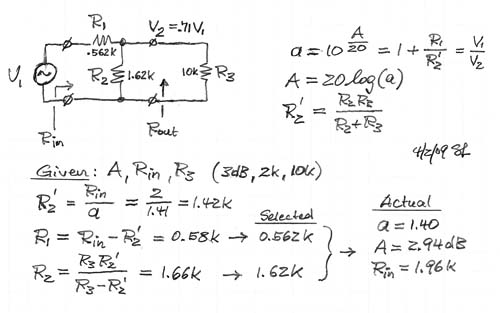 R₁
.562K
V₂ = .71V₁
V₁
R₂
1.62K
10K
R₃
Rin
Rout
a = 10^(A/20) = 1 + R₁/R₂' = V₁/V₂
A = 20 log(a)
R₂' = R₂R₃/(R₂+R₃)
Given: A, Rin, R₃ (3dB, 2K, 10K)
R₂' = Rin/a = 2/1.41 = 1.42K
R₁ = Rin - R₂' = 0.58K → 0.562K
R₂ = R₃R₂'/(R₃-R₂') = 1.66K → 1.62K
Selected
Actual
a = 1.40
A = 2.94dB
Rin = 1.96K